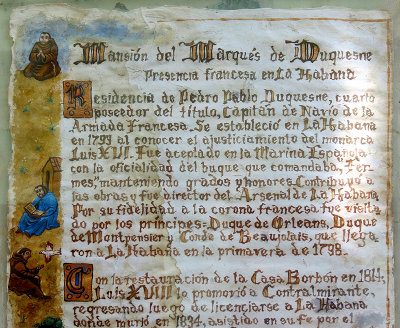 Mansión del Marqués de Duquesne
Presencia francesa en La Habana
Residencia de Pedro Pablo Duquesne, cuarto
poseedor del título, Capitán de Navío de la
Armada Francesa. Se estableció en La Habana
en 1793 al conocer el ajusticiamiento del monarca
Luis XVI. Fue aceptado en la Marina Española
con la oficialidad del buque que comandaba, Fer-
mes, manteniendo grados y honores. Contribuyó a
las obras y fue director del Arsenal de La Habana.
Por su fidelidad a la corona francesa fue visita-
do por los príncipes-Duque de Orleans, Duque
de Montpensier y Conde de Beaujolais, que llega-
ron a La Habana en la primavera de 1798.
Con la restauración de la Casa Borbón en 1814,
Luis XVIII lo promovió a Contralmirante,
regresando luego de licenciarse a La Habana
donde murió en 1834, asistido en su fe por el